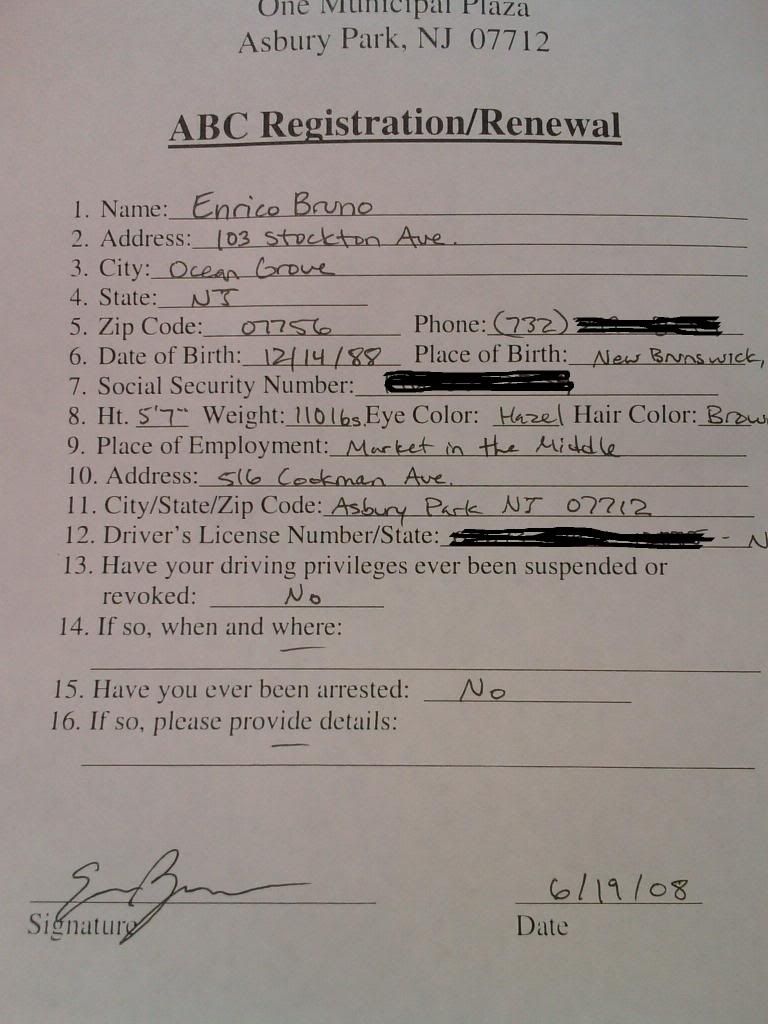 One Municipal Plaza
Asbury Park, NJ 07712
ABC Registration/Renewal
1. Name: Enrico Bruno
2. Address: 103 Stockton Ave.
3. City: Ocean Grove
4. State: NJ
5. Zip Code: 07756 Phone: (732)
6. Date of Birth: 12/14/88 Place of Birth: New Brunswick,
7. Social Security Number:
8. Ht. 5'7" Weight: 110lbs. Eye Color: Hazel Hair Color: Brow
9. Place of Employment: Market in the Middle
10. Address: 516 Cookman Ave.
11. City/State/Zip Code: Asbury Park NJ 07712
12. Driver's License Number/State: - N
13. Have your driving privileges ever been suspended or
revoked: No
14. If so, when and where:
15. Have you ever been arrested: No
16. If so, please provide details:
E Bruno 6/19/08
Signature Date